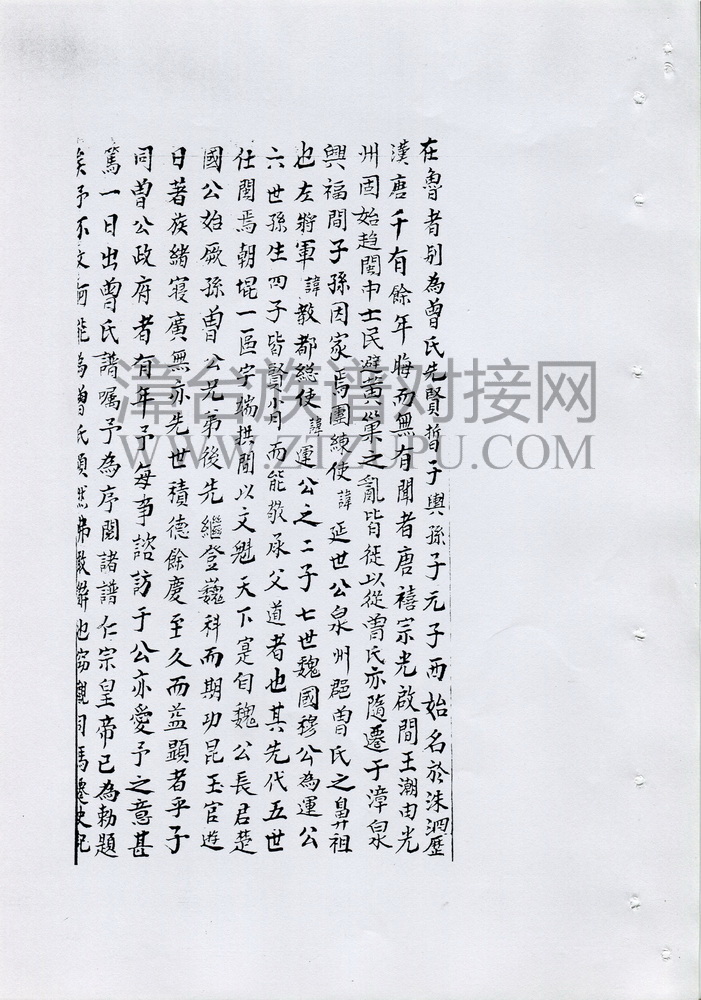 在魯者別為曾氏先賢晢子輿孫子元子西始名於洙泗歷
漢唐千有餘年晦而無有聞者唐禧宗光啟間王潮由光
州固始趋閩中士民避黃巢之亂皆徙以從曾氏亦隨遷于漳泉
興福間子孫因家焉團練使諱延世公泉州郡曾氏之鼻祖
也左將軍諱教都總使諱運公之二子七世魏國穆公為運公
六世孫生四子皆賢肖而能敬承父道者也其先代五世
仕閩焉朝堒一區字端拱間以文魁天下寔自魏公長君楚
國公始厥孫曾公兄弟後先繼登巍科而期功昆玉官遊
日著族緒寢廣無亦先世積德餘慶至久而益顯者乎予
同曾公政府者有年予每事諮訪于公亦愛予之意甚
篤一日出曾氏譜嘱予為序閱諸譜仁宗皇帝已為勅題
矣予不文何能為曾氏
漳台族谱对接网
WWW.ZTZUPU.COM